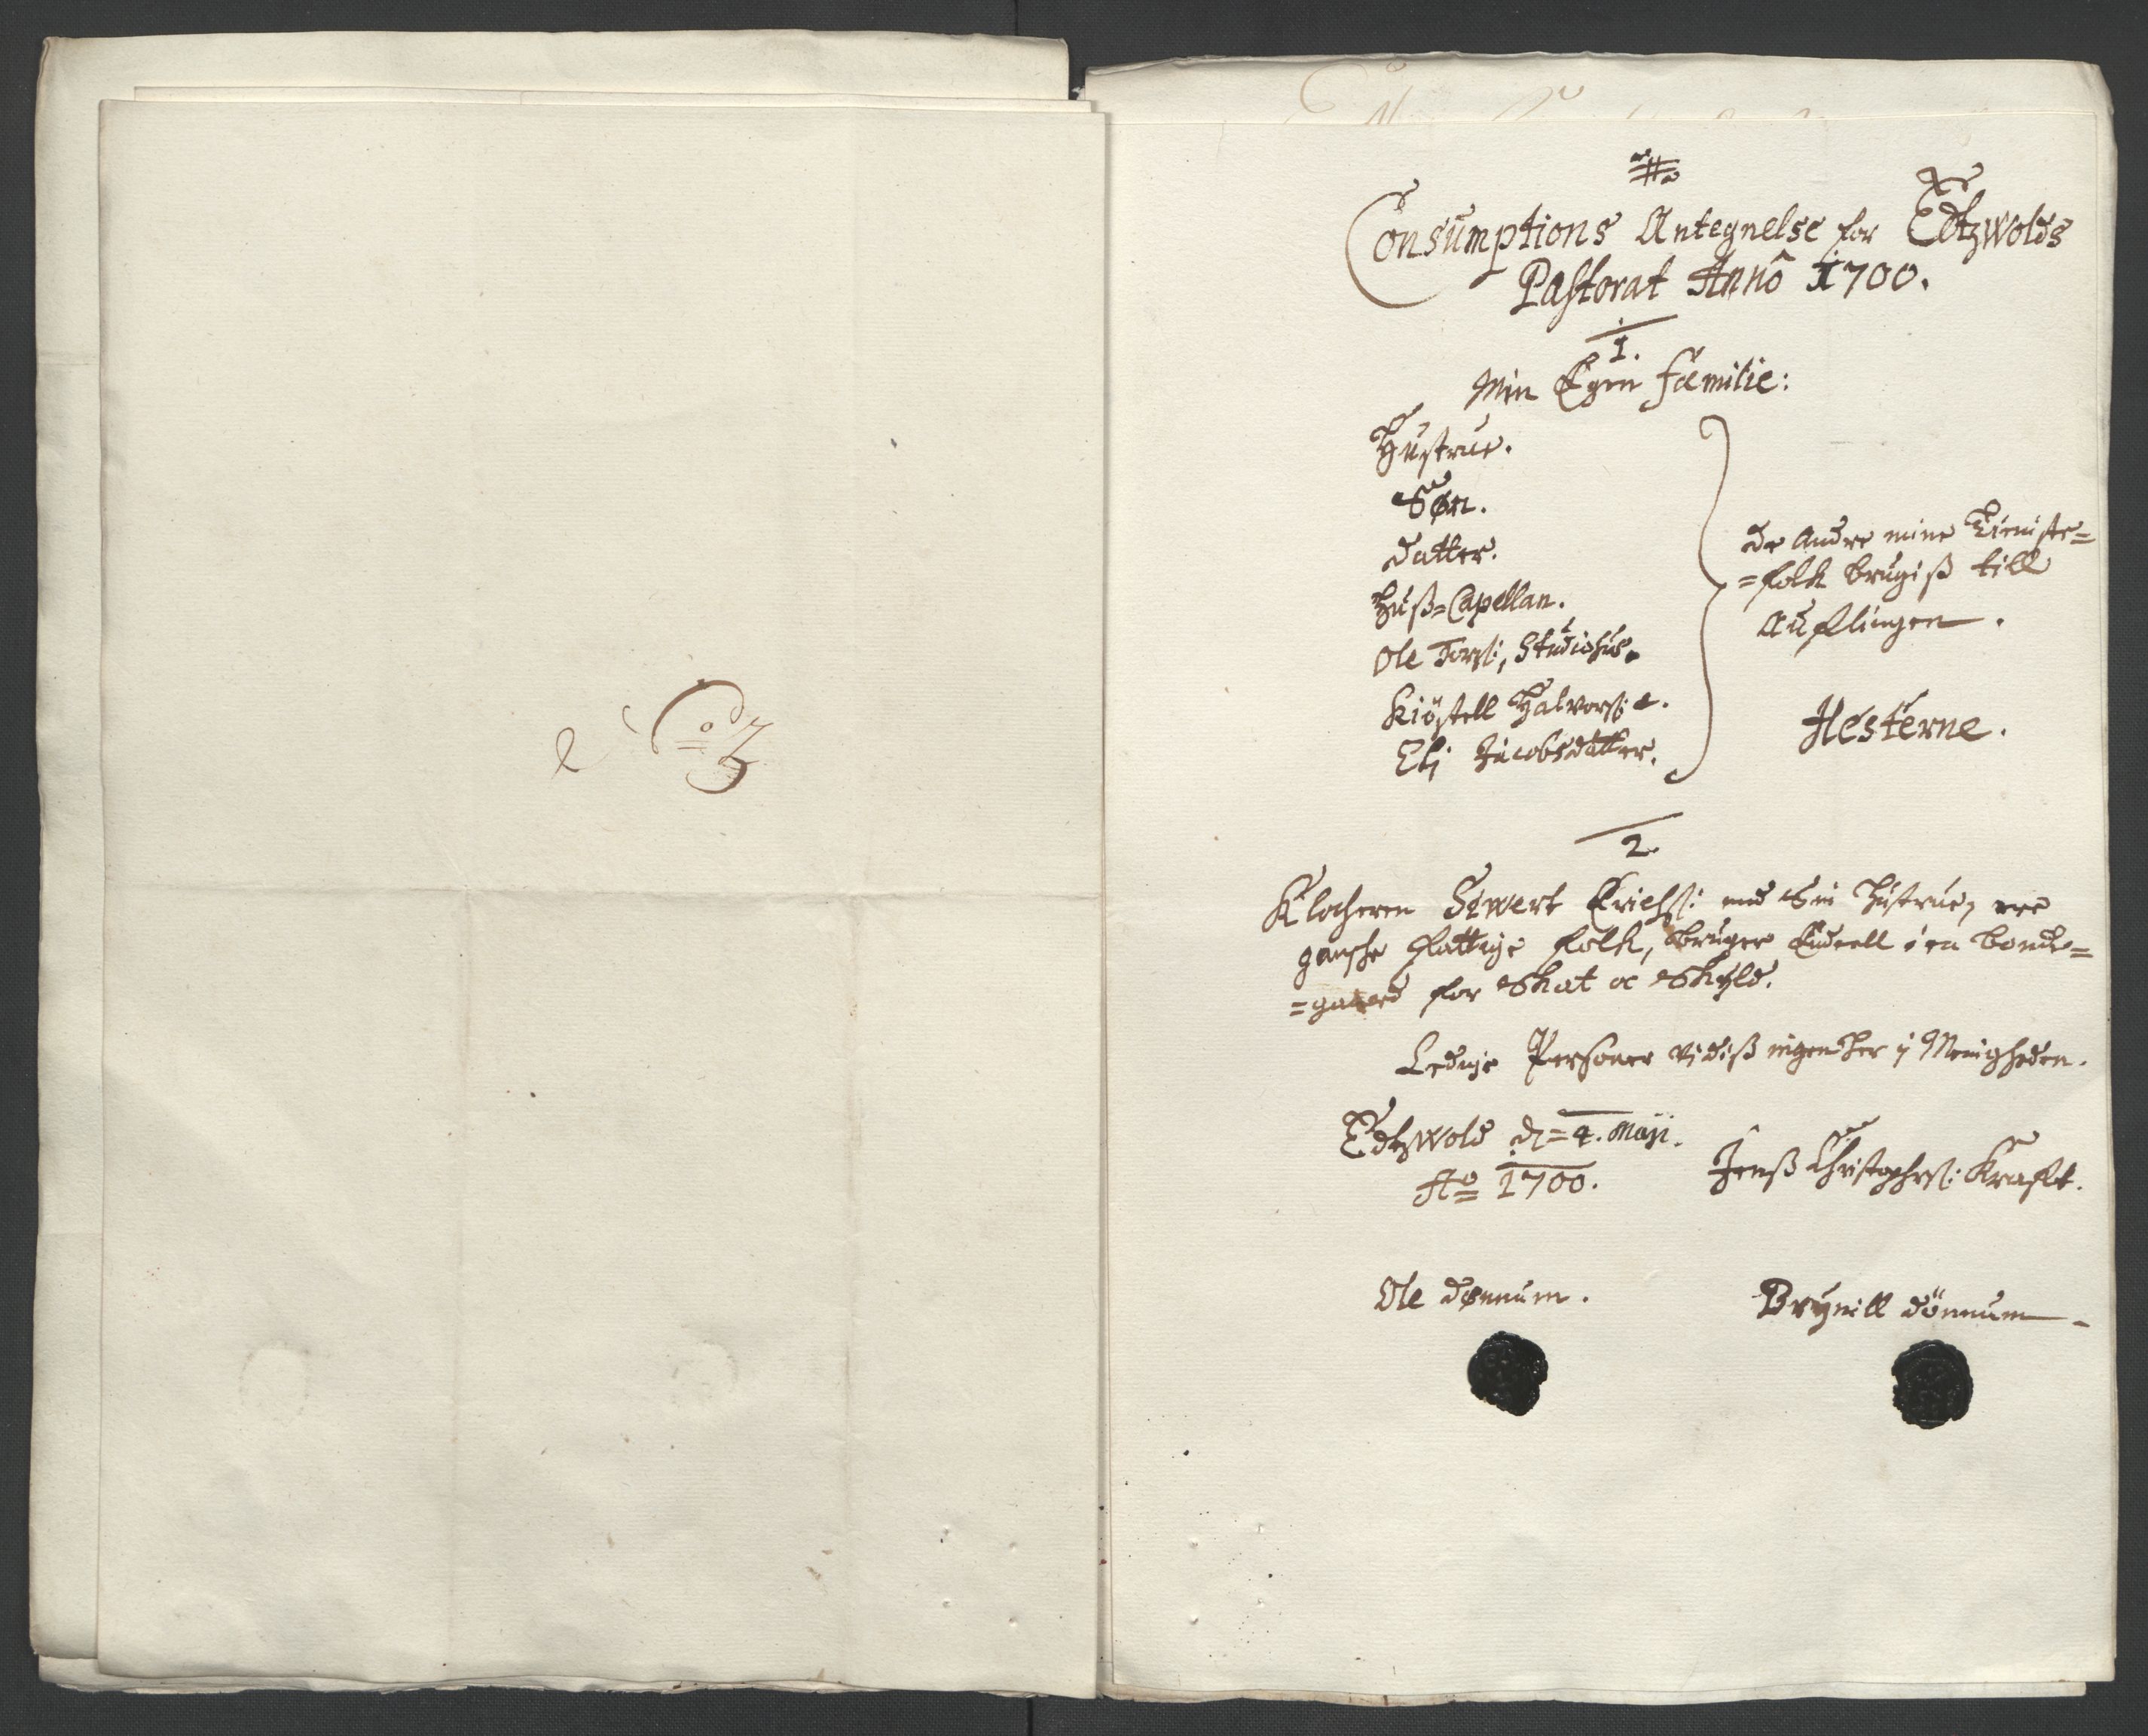 Consumptions Antegnelse for Edtzwolds
Pastorat Anno 1700.
1.
Min Egen familie:
Hustrue.
Søn.
Datter.
Huß=Capellan.
Ole Torß:, Studiosus.
Kiöstell Halvorß:
Eli Jacobsdatter.
De Andre mine Tieniste=
=folk brugiß till
Auflingen.
Hesterne.
2.
Klocheren Sywert Erichß: med Sin Hustrue, ere
gansche fattige folk, bruger Endeell i en bonde=
=gaard for Skat oc Skyld.
Ledige Personer vidiß ingen her i Menigheden.
Edtzwold d= 4. Maji.
Ao 1700.
Jenß Christophersß: Kraft.
Ole Dønnum.
Brynill Dönnum